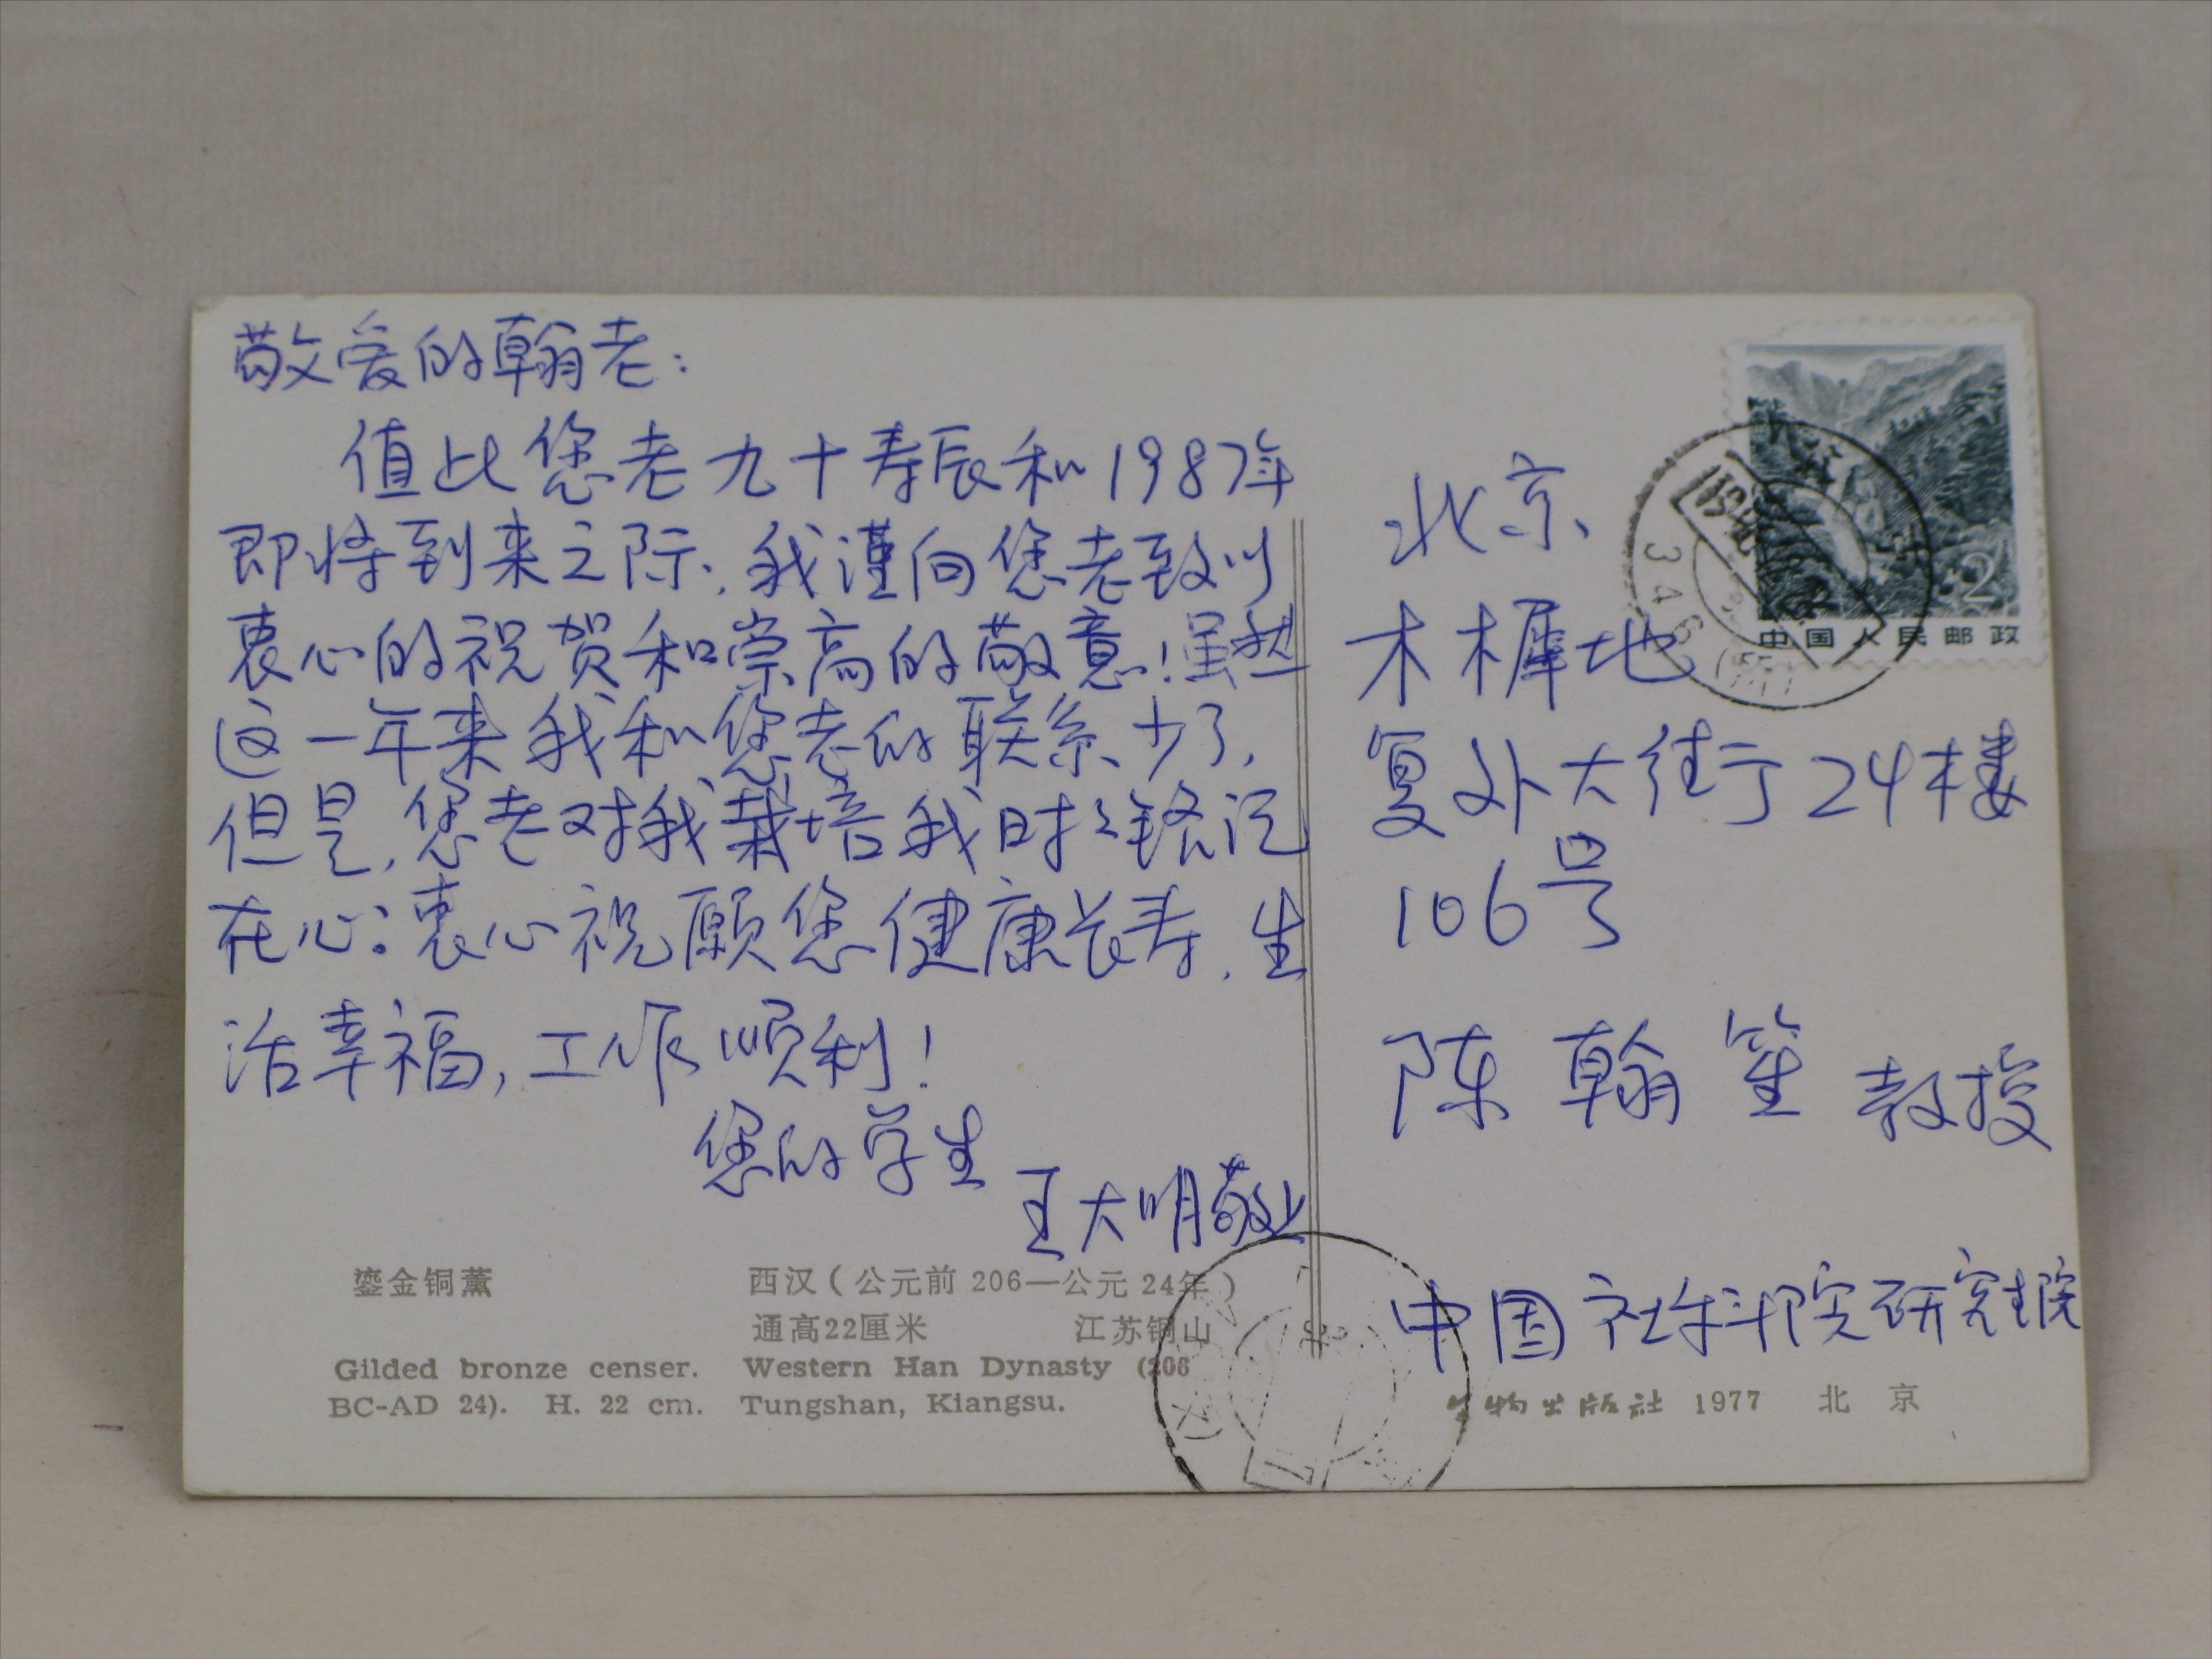 敬爱的翰老：
值此您老九十寿辰和1987年
即将到来之际，我谨向您老致以
衷心的祝贺和崇高的敬意！虽然
这一年来我和您老的联系少了，
但是，您老对我栽培我时々铭记
在心：衷心祝愿您健康长寿，生
活幸福，工作顺利！
您的学生
王大明敬上
鎏金铜薰 西汉（公元前 206—公元 24年）
通高22厘米 江苏铜山
Gilded bronze censer. Western Han Dynasty (206
BC-AD 24). H. 22 cm. Tungshan, Kiangsu.
2
中国人民邮政
346
北京
木樨地
复外大街24楼
106号
陈翰笙教授
中国社科院研究生院
文物出版社 1977 北京